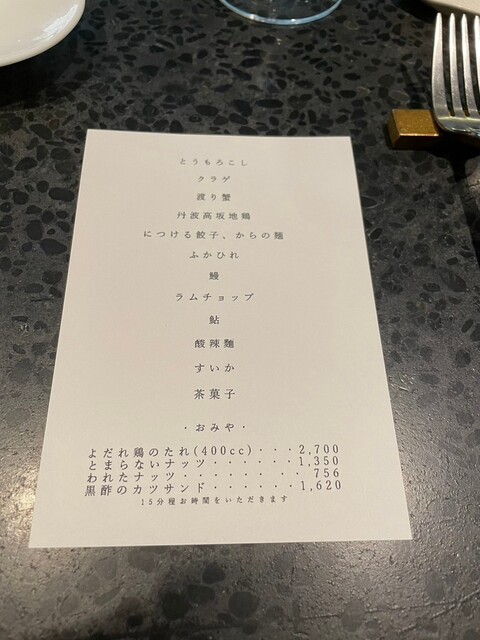 とうもろこし
クラゲ
渡り蟹
丹波高坂地鶏
につける餃子、からの麺
ふかひれ
鰻
ラムチョップ
鮎
酸辣麺
すいか
茶菓子
・おみや・
よだれ鶏のたれ(400cc)・・・2,700
とまらないナッツ・・・・・・1,350
われたナッツ・・・・・・・・ 756
黒酢のカツサンド・・・・・・1,620
15分程お時間をいただきます